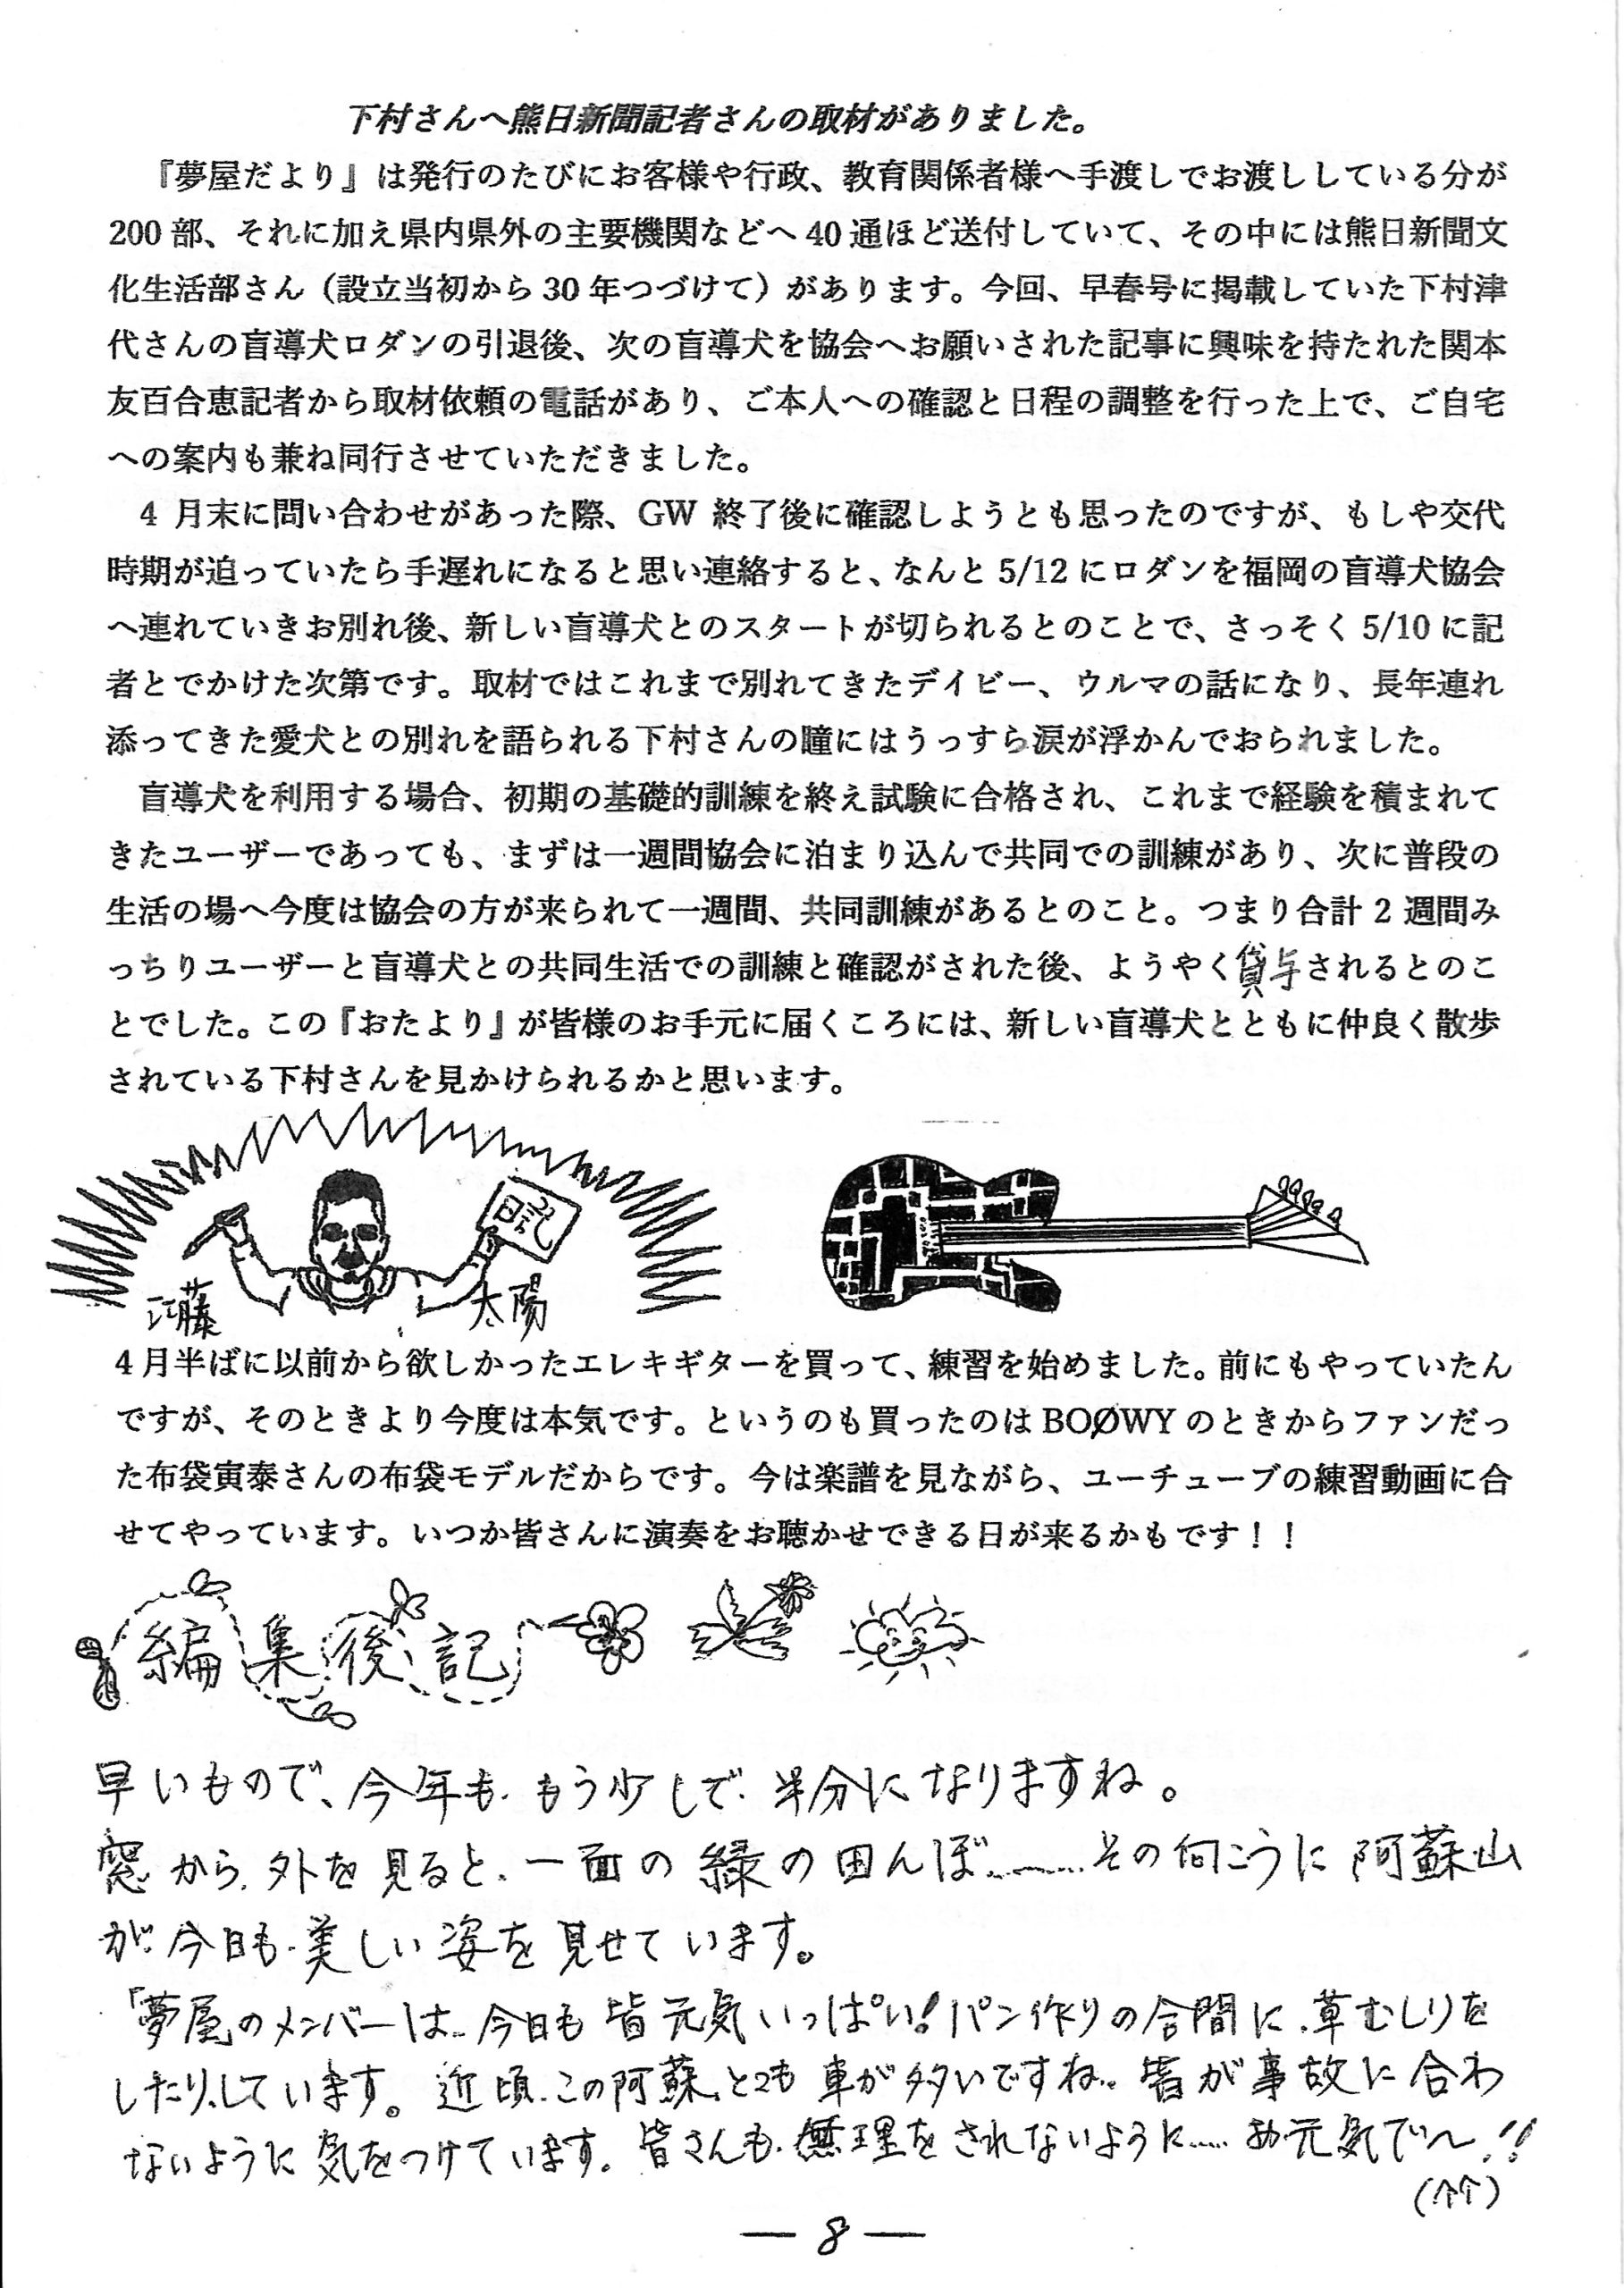 下村さんへ熊日新聞記者さんの取材がありました。
『夢屋だより』は発行のたびにお客様や行政、教育関係者様へ手渡しでお渡ししている分が
200部、それに加え県内県外の主要機関などへ40通ほど送付していて、その中には熊日新聞文
化生活部さん（設立当初から30年つづけて）があります。今回、早春号に掲載していた下村津
代さんの盲導犬ロダンの引退後、次の盲導犬を協会へお願いされた記事に興味を持たれた関本
友百合恵記者から取材依頼の電話があり、ご本人への確認と日程の調整を行った上で、ご自宅
への案内も兼ね同行させていただきました。
4月末に問い合わせがあった際、GW終了後に確認しようとも思ったのですが、もしや交代
時期が迫っていたら手遅れになると思い連絡すると、なんと5/12にロダンを福岡の盲導犬協会
へ連れていきお別れ後、新しい盲導犬とのスタートが切られるとのことで、さっそく5/10に記
者とでかけた次第です。取材ではこれまで別れてきたデイビー、ウルマの話になり、長年連れ
添ってきた愛犬との別れを語られる下村さんの瞳にはうっすら涙が浮かんでおられました。
盲導犬を利用する場合、初期の基礎的訓練を終え試験に合格され、これまで経験を積まれて
きたユーザーであっても、まずは一週間協会に泊まり込んで共同での訓練があり、次に普段の
生活の場へ今度は協会の方が来られて一週間、共同訓練があるとのこと。つまり合計2週間み
っちりユーザーと盲導犬との共同生活での訓練と確認がされた後、ようやく貸与されるとのこ
とでした。この『おたより』が皆様のお手元に届くころには、新しい盲導犬とともに仲良く散歩
されている下村さんを見かけられるかと思います。
日記
江藤 太陽
4月半ばに以前から欲しかったエレキギターを買って、練習を始めました。前にもやっていたん
ですが、そのときより今度は本気です。というのも買ったのはBOØWYのときからファンだっ
た布袋寅泰さんの布袋モデルだからです。今は楽譜を見ながら、ユーチューブの練習動画に合
せてやっています。いつか皆さんに演奏をお聴かせできる日が来るかもです！！
編集後記
早いもので、今年も、もう少しで、半分になりますね。
窓から、外を見ると、一面の緑の田んぼ………その向こうに阿蘇山
が、今日も、美しい姿を見せています。
「夢屋のメンバーは、今日も皆元気いっぱい！パン作りの合間に、草むしりを
したり、しています。近頃、この阿蘇、とても車が多いですね。皆が事故に合わ
ないように気をつけています。皆さんも、無理をされないように……お元気で〜！！
（竹）
― 8 ―